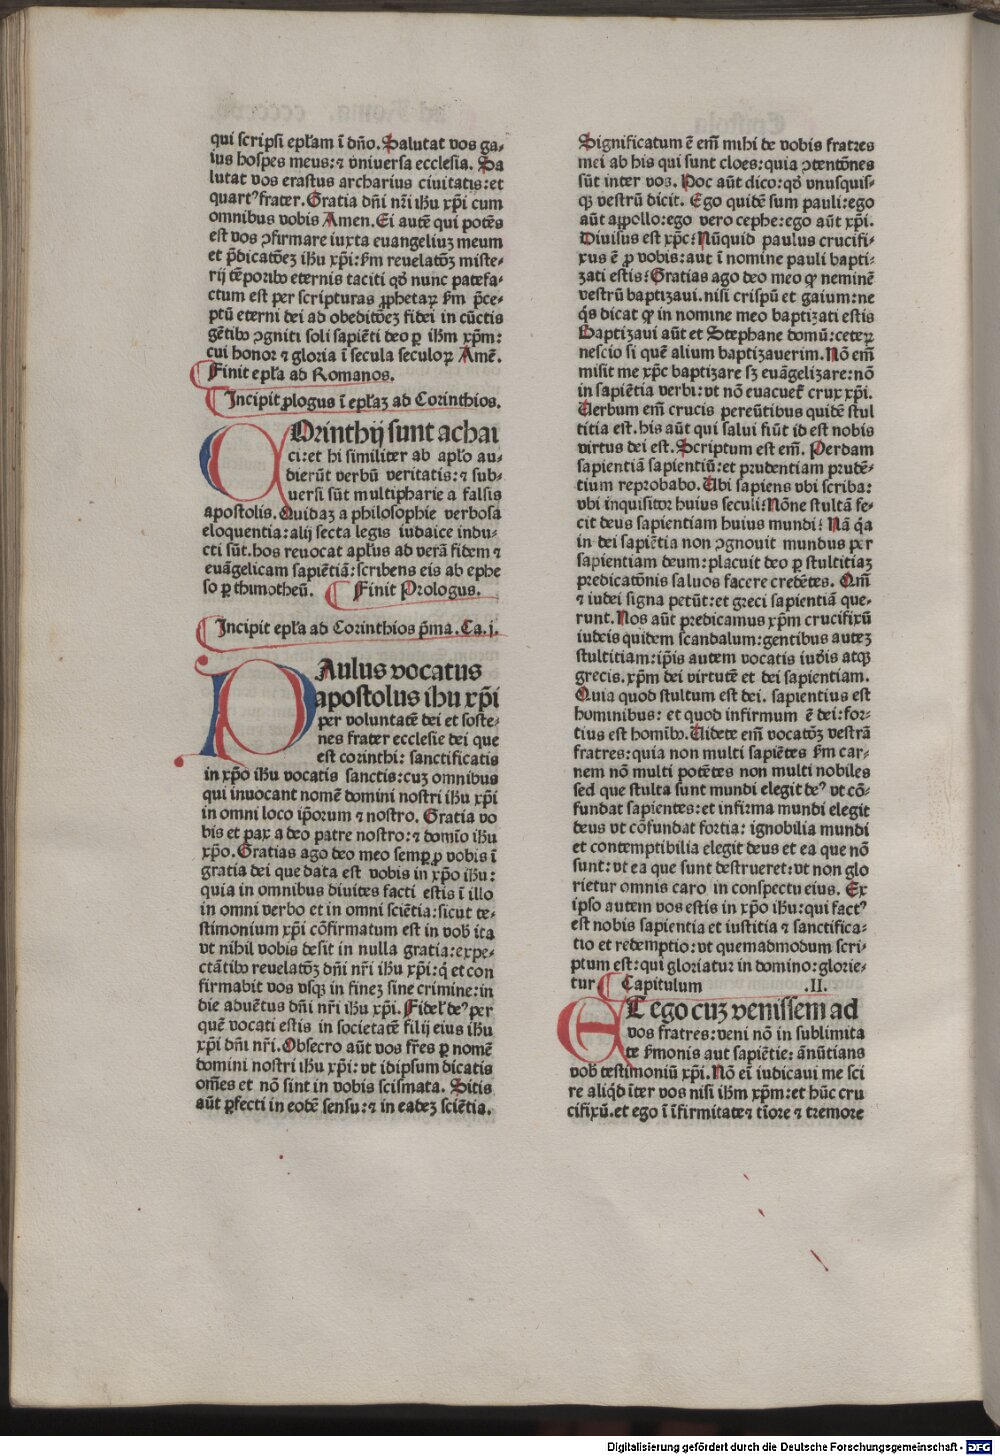 qui scripsi epłam ī dño. Salutat vos ga-
ius hospes meus: ⁊ vniuersa ecclesia. Sa
lutat vos erastus archarius ciuitatis: et
quartꝰ frater. Gratia dñi nr̃i ihũ xp̃i cum
omnibus vobis Amen. Ei autē qui potēs
est vos ꝯfirmare iuxta euangeliuꝫ meum
et p̃dicatōeꝫ ihũ xp̃i: ẜm reuelatōꝫ miste-
rij tēporibꝰ eternis taciti qđ nunc patefa-
ctum est per scripturas ꝓphetaꝝ ẜm p̄ce-
ptū eterni dei ad obeditōeꝫ fidei in cūctis
gētibꝰ ꝯgniti soli sapiēti deo ꝑ ihm̄ xp̄m:
cui honor ⁊ gloria ī secula seculoꝝ Amē.
Finit epła ad Romanos.
Incipit ꝓlogus ī epłaꝫ ad Corinthios.
COrinthij sunt achai
ci: et hi similiter ab apło au-
dierūt verbū veritatis: ⁊ sub-
uersi sūt multipharie a falsis
apostolis. Quidaꝫ a philosophie verbosa
eloquentia: alij secta legis iudaice indu-
cti sūt. hos reuocat apłus ad verā fidem ⁊
euāgelicam sapiētiā: scribens eis ab ephe
so ꝑ thimotheū. Finit Prologus.
Incipit epła ad Corinthios p̃ma. Ca. j.
PAulus vocatus
apostolus ihũ xp̃i
per voluntatē dei et soste-
nes frater ecclesie dei que
est corinthi: sanctificatis
in xp̃o ihũ vocatis sanctis: cuꝫ omnibus
qui inuocant nomē domini nostri ihũ xp̃i
in omni loco ip̃orum ⁊ nostro. Gratia vo
bis et pax a deo patre nostro: ⁊ domīo ihũ
xp̃o. Gratias ago deo meo semꝑ ꝓ vobis ī
gratia dei que data est vobis in xp̃o ihũ:
quia in omnibus diuites facti estis ī illo
in omni verbo et in omni sciētia: sicut te-
stimonium xp̃i cōfirmatum est in vob̄ ita
vt nihil vobis desit in nulla gratia: expe-
ctātibꝰ reuelatōꝫ dñi nr̃i ihũ xp̃i: q̇ et con
firmabit vos vsqꝫ in fineꝫ sine crimine: in
die aduētus dñi nr̃i ihũ xp̃i. Fidel̄ deꝰ per
quē vocati estis in societatē filij eius ihũ
xp̃i dñi nr̃i. Obsecro aūt vos fr̃es ꝑ nomē
domini nostri ihũ xp̃i: vt idipsum dicatis
om̄es et nō sint in vobis scismata. Sitis
aūt ꝑfecti in eodē sensu: ⁊ in eadeꝫ sciētia.
Significatum ē em̄ mihi de vobis fratres
mei ab his qui sunt cloes: quia ꝯtentōnes
sūt inter vos. Hoc aūt dico: qđ vnusquis-
qꝫ vestrū dicit. Ego quidē sum pauli: ego
aūt apollo: ego vero cephe: ego aūt xp̃i.
Diuisus est xp̄c? Nūquid paulus crucifi-
xus ē ꝓ vobis: aut ī nomine pauli bapti-
zati estis? Gratias ago deo meo qꝛ neminē
vestrū baptizaui. nisi crispū et gaium: ne
q̇s dicat qꝛ in nomine meo baptizati estis
Baptizaui aūt et Stephane domū: ceteꝝ
nescio si quē alium baptizauerim. Nō em̄
misit me xp̄c baptizare sꝫ euāgelizare: nō
in sapiētia verbi: vt nō euacuet̄ crux xp̃i.
Uerbum em̄ crucis pereūtibus quidē stul
titia est. his aūt qui salui fiūt id est nobis
virtus dei est. Scriptum est em̄. Perdam
sapientiā sapientiū: et prudentiam prudē-
tium reprobabo. Ubi sapiens vbi scriba:
vbi inquisitor huius seculi? Nōne stultā fe-
cit deus sapientiam huius mundi? Nā q̄a
in dei sapiētia non ꝯgnouit mundus per
sapientiam deum: placuit deo ꝑ stultitiaꝫ
predicatōnis saluos facere credētes. Qm̄
⁊ iudei signa petūt: et greci sapientiā que-
runt. Nos aūt predicamus xp̄m crucifixū
iudeis quidem scandalum: gentibus auteꝫ
stultitiam: ip̄is autem vocatis iud̄is atqꝫ
grecis. xp̄m dei virtutē et dei sapientiam.
Quia quod stultum est dei. sapientius est
hominibus: et quod infirmum ē dei: for-
tius est homībꝰ. Uidete em̄ vocatōꝫ vestrā
fratres: quia non multi sapiētes ẜm car-
nem nō multi potētes non multi nobiles
sed que stulta sunt mundi elegit deꝰ vt cō-
fundat sapientes: et infirma mundi elegit
deus vt cōfundat fortia: ignobilia mundi
et contemptibilia elegit deus et ea que nō
sunt: vt ea que sunt destrueret: vt non glo
rietur omnis caro in conspectu eius. Ex
ipso autem vos estis in xp̃o ihũ: qui factꝰ
est nobis sapientia et iustitia ⁊ sanctifica-
tio et redemptio: vt quemadmodum scri-
ptum est: qui gloriatur in domino: glorie-
tur. Capitulum .II.
ET ego cuꝫ venissem ad
vos fratres: veni nō in sublimita
te ẜmonis aut sapiētie: ānūtians
vob̄ testimoniū xp̃i. Nō ei̅ iudicaui me sci
re aliq̇d īter vos nisi ihm̄ xp̄m: et hūc cru
cifixū. et ego ī īfirmitate ⁊ tīore ⁊ tremore
Digitalisierung gefördert durch die Deutsche Forschungsgemeinschaft - DFG